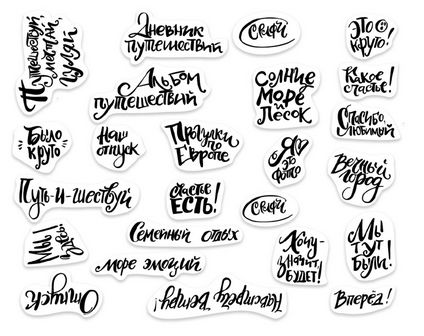 Путешествуй,
мечтай,
гуляй
Дневник
путешествий
СЕЛФИ
ЭТО
круто!
Альбом
путешествий
Солнце
Море
Песок
Какое
счастье!
Спасибо,
любимый
Было
круто
Наш
отпуск
Прогулки
по
Европе
Я
это
фото
Вечный
город
Путь-и-шествуй
счастье
ЕСТЬ!
СЕЛФИ
Мы
здесь!
Семейный отдых
море эмоций
Хочу-
значит
БУДЕТ!
Мы
ТУТ
были!
Отпуск
Навстречу Ветру!
Вперёд!